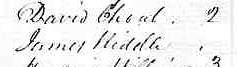 David Choat . 2
James Kiddle .
3